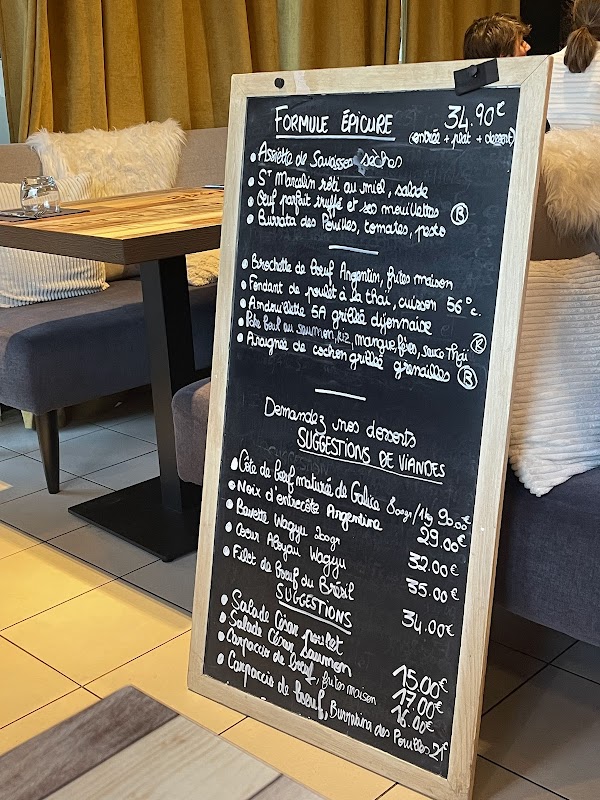 FORMULE ÉPICURE 34.90€
(entrée + plat + dessert)
• Assiette de Saucisses sèches
• St Marcelin rôti au miel, salade
• Oeuf parfait truffé et ses mouillettes Ⓡ
• Burrata des Pouilles, tomates, pesto
• Brochette de boeuf Argentin, frites maison
• Fondant de poulet à la thai, cuisson 56°c.
• Andouillette 5A grillée dijonnaise
• Poke bowl au saumon, riz, mangue, fèves, sauce Thaï Ⓡ
• Araignée de cochon grillée grenailles Ⓡ
Demandez nos desserts
SUGGESTIONS DE VIANDES
• Côte de boeuf maturée de Galice 800gr/1kg 90.00€
• Noix d'entrecôte Argentine 29.00€
• Bavette Wagyu 200gr 32.00€
• Coeur Aloyau Wagyu 35.00€
• Filet de boeuf du Brésil 34.00€
SUGGESTIONS
• Salade César poulet 15.00€
• Salade César Saumon 17.00€
• Carpaccio de boeuf, frites maison 16.00€
• Carpaccio de boeuf, Burratina des Pouilles 21€